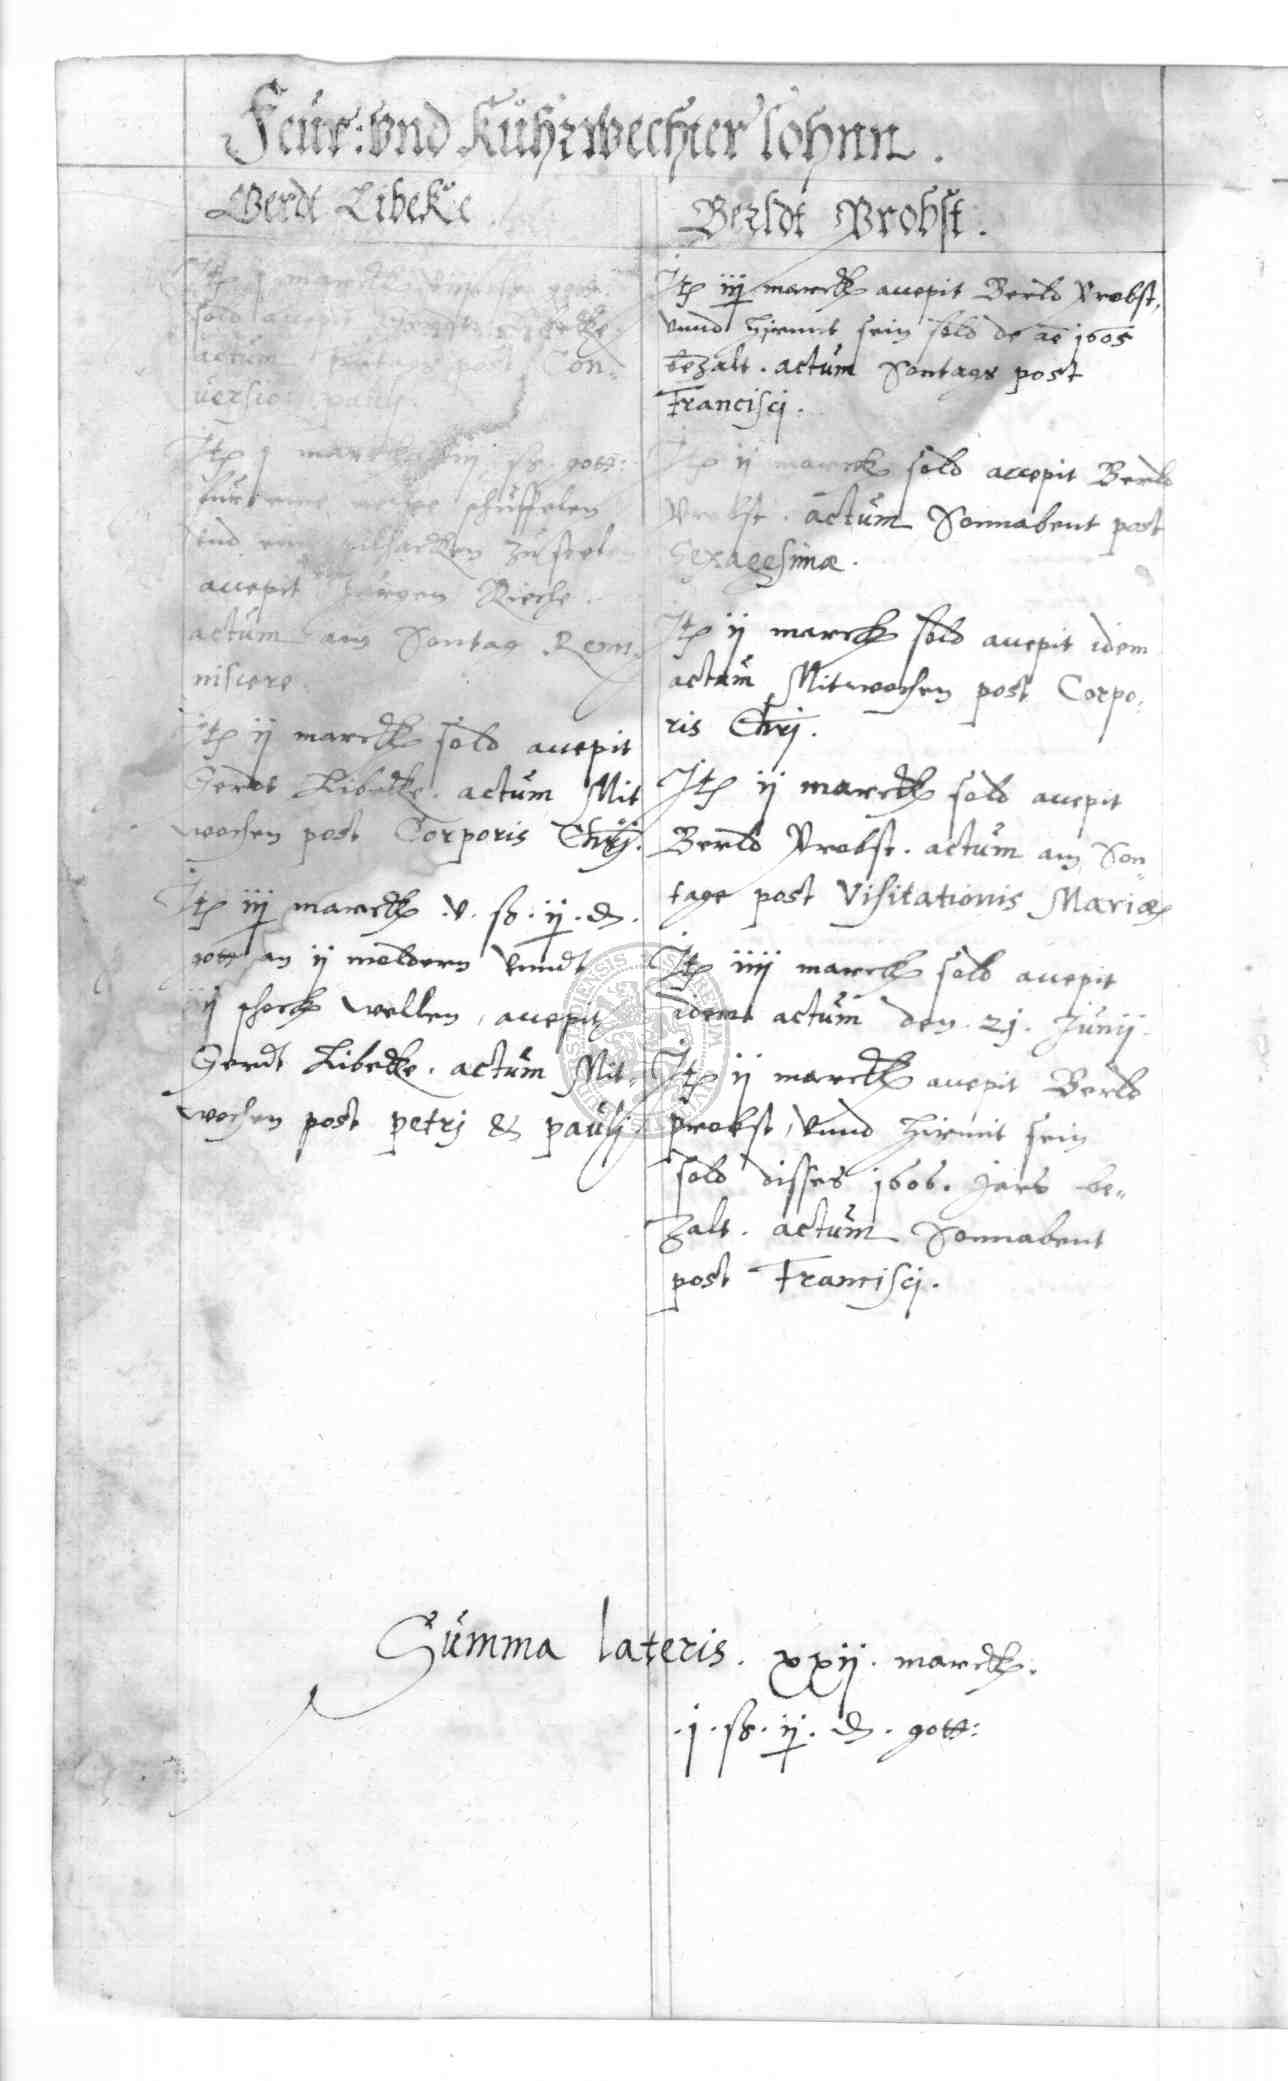 Feür: vnd Kührwechter lohnn.
Gerdt Libeke
Itē marck gott:
sold accepit Libecke
actum post Con=
versio: pauli.
Itē j marck iij ß. gott:
schüffelen
vnd
accepit Jürgen Rieche.
actum am Sontag Remi=
niscere.
Itē ij marck sold accepit
Gerdt Libecke. actum Mit
wochen post Corporis Chrj.
Itē iij marck .v. ß. ij. d.
gott an ij moldern vnndt
ij schock wellen, accepit
Gerdt Libecke. actum Mit=
wochen post petrj & paulj
Berldt Probst.
Itē iij marck accepit Berld Probst,
vnnd hirmit sein sold de aō 1605
bezalt. actum Sontags post
Francisci.
Itē ij marck sold accepit Berld
Probst. actum Sonnabent post
Sexagesimæ.
Itē ij marck sold accepit idem
actum Mitwochen post Corpo=
ris Chrj.
Itē ij marck sold accepit
Berld Probst. actum am Son=
tage post Visitationis Mariæ
Itē iiij marck sold accepit
idem actum den .21. Junij.
Itē ij marck accepit Berld
probst, vnnd hirmit sein
sold disses 1606. Jars be=
zalt. actum Sonnabent
post Francisci.
Summa lateris. xxij. marck.
.j. ß. ij. d. gott: